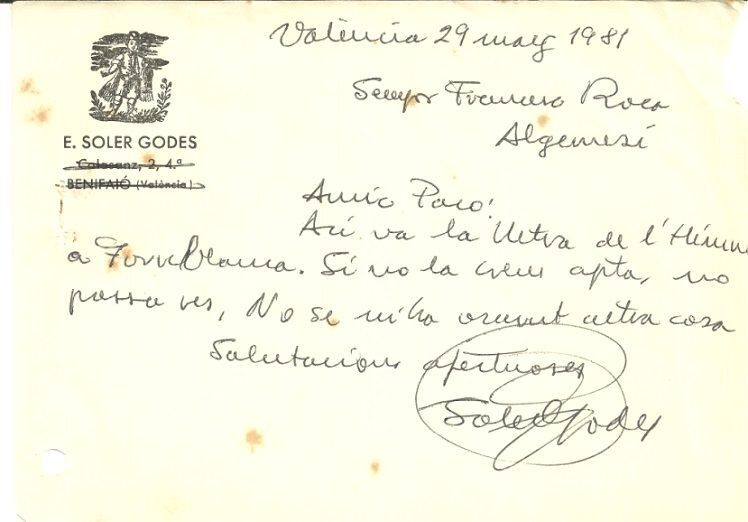 València 29 març 1981
Senyor Francesc Roca
Algemesí
E. SOLER GODES
Calasanz, 2, 4.º
BENIFAIÓ (València)
Amic Paco:
Ací va la lletra de l'Himne
a Torreblanca. Si no la creus apta, no
passa res, No se m'ha ocurrut altra cosa
Salutacions afectuoses
Soler Godes